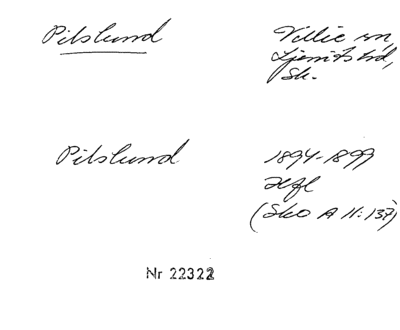 Pilslund
Villie sn,
Ljunits hd,
Sk.
Pilslund
1894-1899
Hfl
(Sko A II:137)
Nr 22322